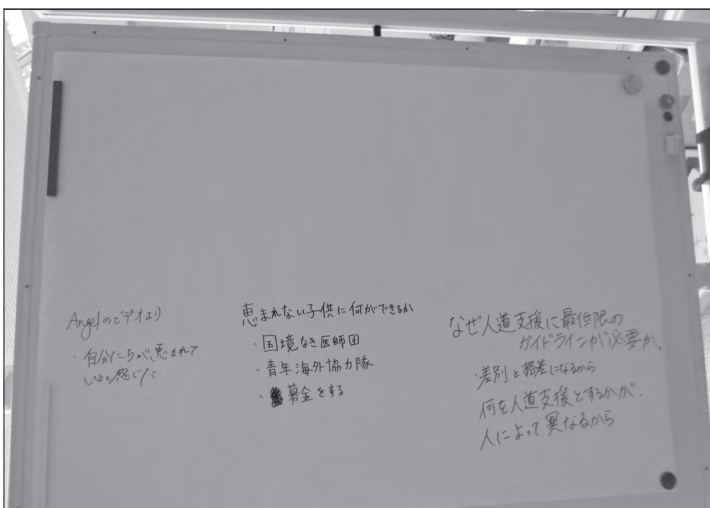 Angelのビデオより
・自分たちが、恵まれて
いると感じた
恵まれない子供に何ができるか
・国境なき医師団
・青年海外協力隊
・募金をする
なぜ人道支援に最低限の
ガイドラインが必要か。
・差別と格差になるから
何を人道支援とするかが、
人によって異なるから